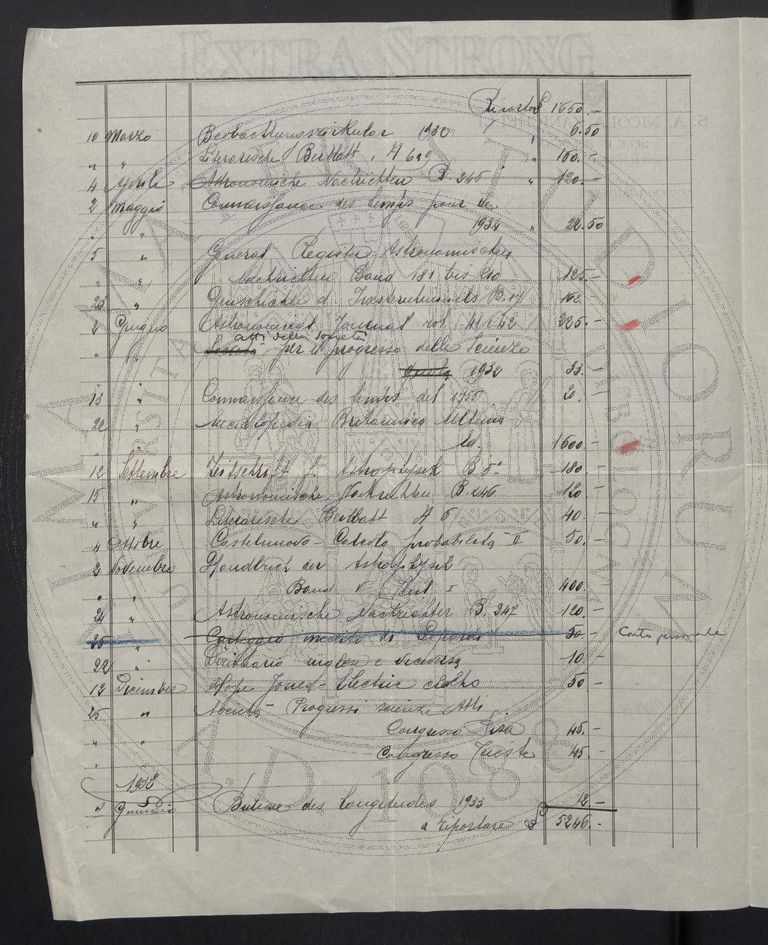 EXTRA STRONG
Riporto £ 1650.-
10 Marzo Beobachtungszirkular 1932 6.50
" " Literarische Beiblatt, H 6 u 9 " 100.-
4 Aprile Astronomische Nachrichten B. 245 " 120.-
2 Maggio Connaissance des temps pour
1934 " 22.50
5 " General Register Astronomischen
Nachrichten Band 181 bis 210 125.-
25 " Geschichte d. B. 17 162.-
2 Giugno Astronomical Journal vol 41 e 42 225.-
atti della Società
per il progresso delle Scienze
1932 33.-
13 " Connaissance des temps del 20.-
22 " Britannica Ultima
ed. 1600.-
12 Settembre Zeitschrift f. Astrophysik B 5° 180.-
15 " Astronomische Nachrichten B. 246 120
" " Literarische Beiblatt H 5 40.-
4 Ottobre Castelnuovo - Calcolo probabilità II 50.-
2 Novembre Handbuch der Astrophysik
" " Band V Heit I 400.-
21 " Astronomische Nachrichten B. 247 120.-
25 " 50.- Conto personale
22 " Dizionario inglese e viceversa 10.-
12 Dicembre Hope Jones - Electric clocks 50.-
25 " Società Progresso scienze Atti
Congresso Pisa 45.-
" " Congresso Trieste 45.-
1933
5 Gennaio Bureau des longitudes 1933 12.-
a riportare £ 5246.-
ALMA MATER STUDIORUM
A.D. 1088